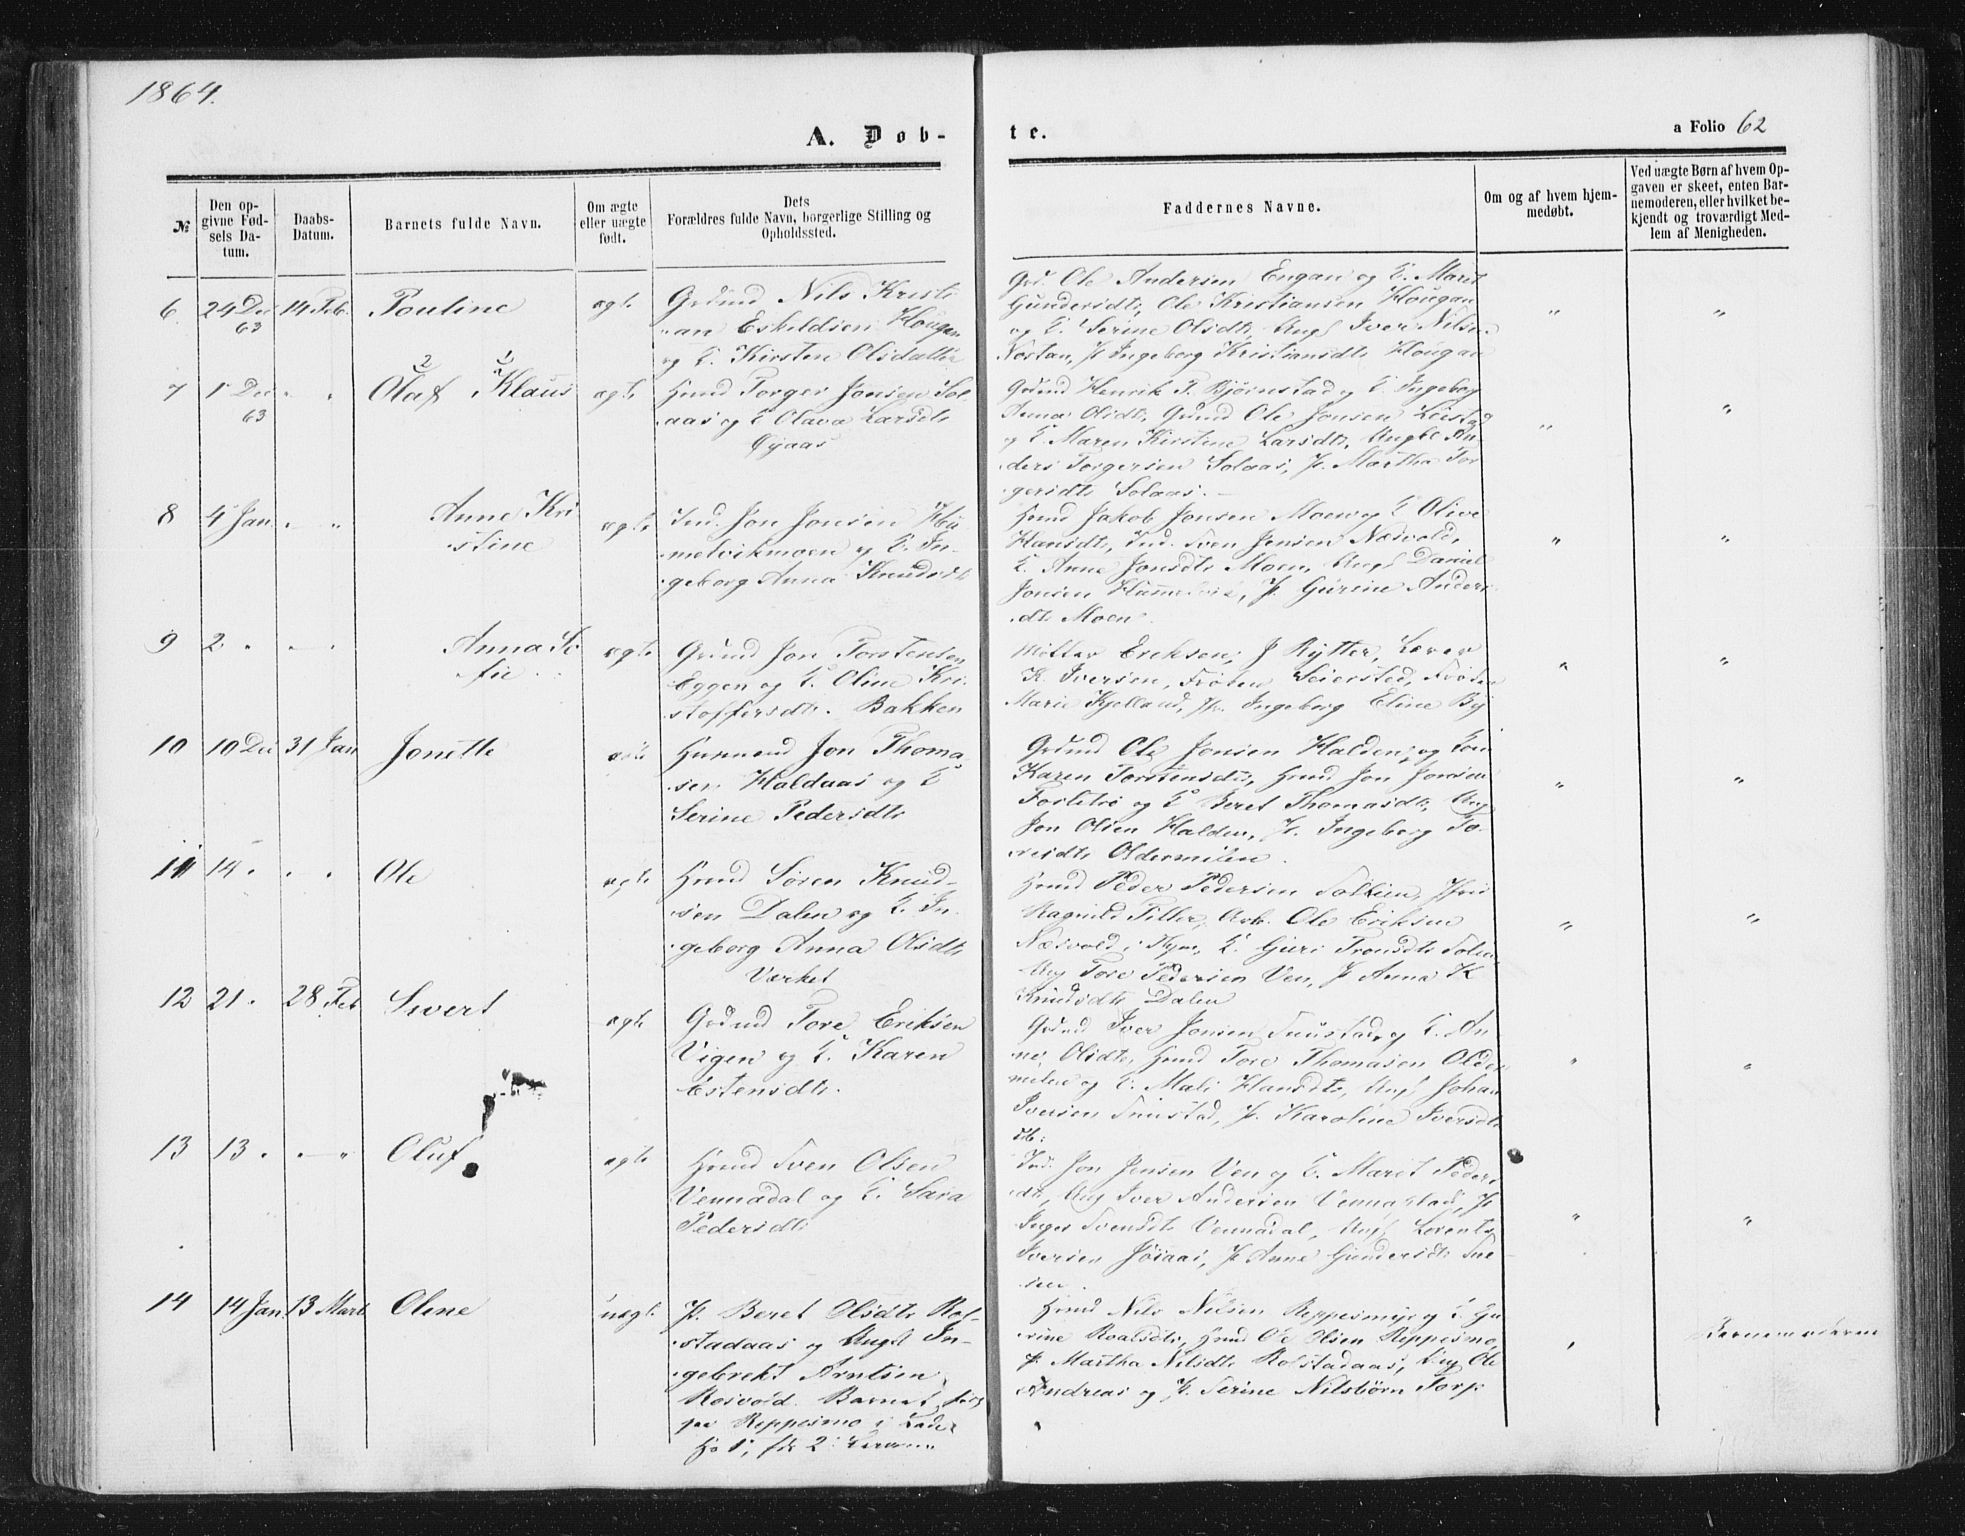 1864.
A. Døb-
te.
a Folio 62
№
Den op-
givne Fød-
sels Da-
tum.
Daabs-
Datum.
Barnets fulde Navn.
Om ægte
eller uægte
født.
Dets
Forældres fulde Navn, borgerlige Stilling og
Opholdssted.
Faddernes Navne.
Om og af hvem hjem-
medøbt.
Ved uægte Børn af hvem Op-
gaven er skeet, enten Bar-
nemoderen, eller hvilket be-
kjendt og troværdigt Med-
lem af Menigheden.
6 24 Dec 63 14 Feb. Pouline ægte
Grdmd Nils Kristi
an Eskildsen Hougan
og E. Kirsten Olsdatter
Grd. Ole Andersen Engan og E. Marit
Gundersdtr, Ole Kristiansen Hougan
og E. Serine Olsdtr, Ungk Iver Nilsen
P. Ingeborg Kristiansdtr Hougan
" "
7 1 Dec 63 " " Olaf Klaus ægte
2 1
Hmd Torger Jonsen Sol
aas og E Olava Larsdtr
Øyaas
Grdmd Henrik P. Bjørnstad og E. Ingeborg
Anna Olsdtr, Grdmd Ole Jonsen
og E. Maren Kirstine Larsdtr, Ungk An
ders Torgersen Solaas, P. Martha Tor
gersdtr Solaas.
" "
8 4 Jan. " " Anne Kri
stine ægte
Ind. Jon Jonsen Hu
melvikmoen og E. In-
geborg Anna Knudsdtr
Hmd Jakob Jonsen Moen og E Olive
Hansdtr, Ind. Sven Jensen Næsvold,
E. Anne Jonsdtr Moen, Ungk Daniel
Jonsen P. Gurine Anders
dtr Moen.
" "
9 2 " " " Anna So
fie ægte
Grdmd Jon Torstensen
Eggen og E. Oline Kri
stoffersdtr. Bakken
Møller Eriksen, J Rytter, Lærer
K. Iversen, Frøken Seiersted, Frøken
Marie Kjelland, P. Ingeborg Eline By
" "
10 10 Dec 31 Jan Jonette ægte
Husmand Jon Thoma
sen Haldaas og E
Serine Pedersdtr
Grdmd Ole Jonsen Halden og
Karen Torstensdtr, Hmd Jon Jonsen
og E Beret Thomasdtr, Ung
Jon Olsen Halden, P. Ingeborg To
resdtr Oldermelen.
" "
11 14 " " " Ole ægte
Hmd Søren Knud-
sen Dalen og E. In-
geborg Anna Olsdtr
Værket
Hmd Peder Pedersen
Ragnild Tiller, Arb. Ole Eriksen
Næsvold, E. Guri Tronsdtr
Ung Tore Pedersen Ven, P Anna K
Knudsdtr Dalen
" "
12 21 " 28 Feb Sivert ægte
Grdmd Tore Eriksen
Vigen og E. Karen
Estensdtr.
Grdmd Iver Jonsen og E. An
ne Olsdtr, Hmd Tore Thomasen Older
melen og E. Mali Hansdtr, Ungk Johan
Iversen P. Karoline Iversdtr
ib:
" "
13 13 " " " Oluf ægte
Hmd Sven Olsen
Vennadal og E. Sara
Pedersdtr
Ind. Jon Jensen Ven og E. Marit Peders
dtr, Ung Iver Andersen Vennastad, P
Inger Svensdtr Vennadal, Ungk Lorents
Iversen P Anne Gundersdtr
" "
14 14 Jan 13 Mart Oline uægte
P. Beret Olsdtr Rol-
stadaas og Ungk In-
gebrekt Arntsen
Rosvold. Barnet født
paa Reppesmo i Lade
Hmd Nils Nilsen Reppesmyr og E Gu
rine Roalsdtr, Hmd Ole Olsen Reppesmo,
P. Martha Nilsdtr Rolstadaas, Ung Ole
Andreas og P. Serine Nilsbørn Torp.
" Barnemoderen